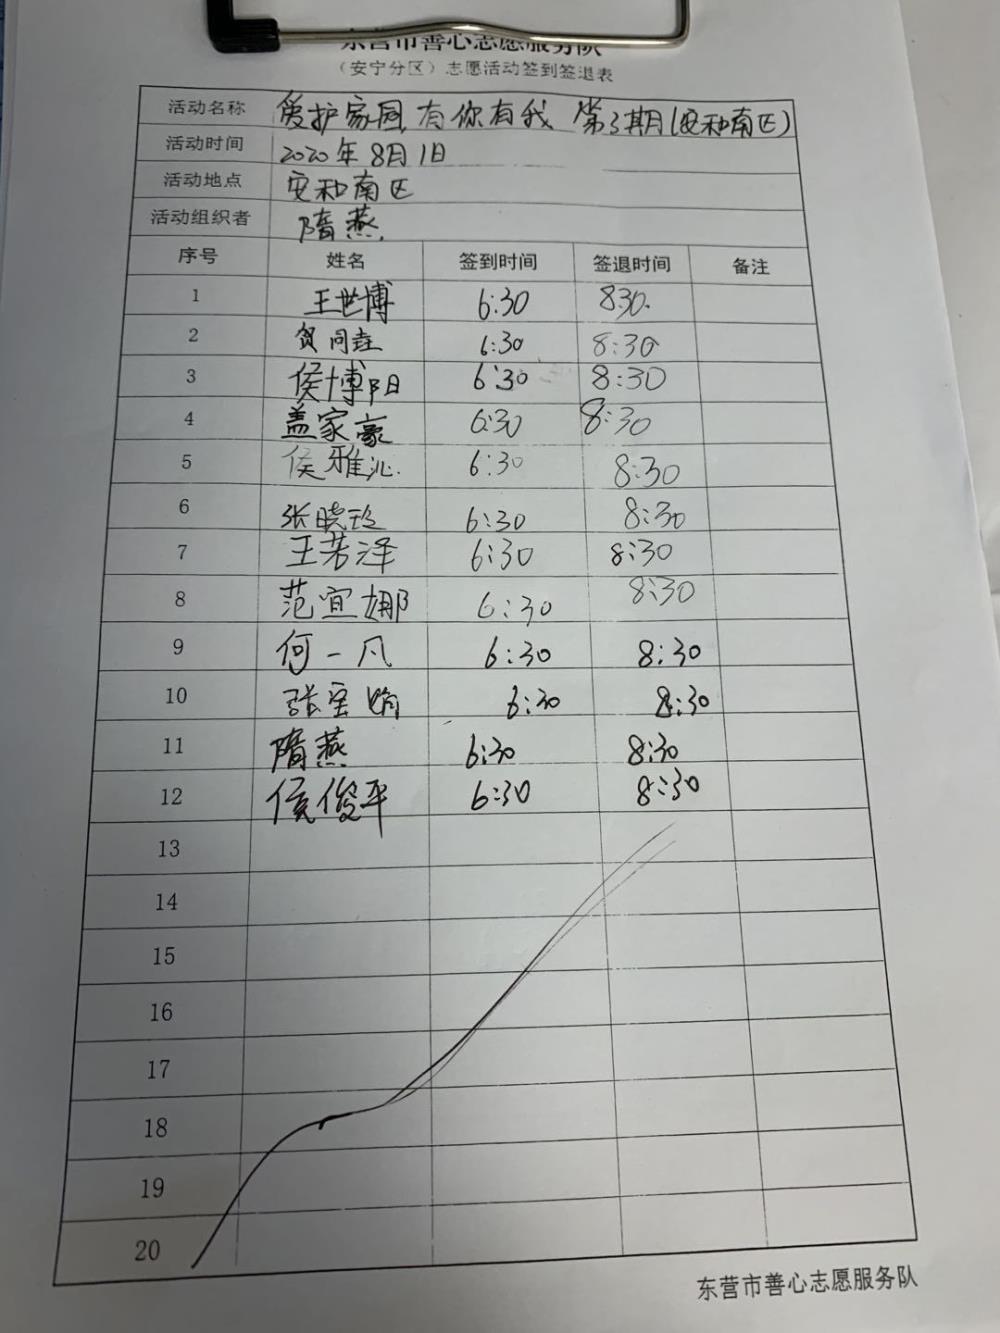 东营市善心志愿服务队
（安宁分区）志愿活动签到签退表
活动名称 爱护家园,有你有我 第3期(安和南区)
活动时间 2020年8月1日
活动地点 安和南区
活动组织者 隋燕
序号 姓名 签到时间 签退时间 备注
1 王世博 6:30 830.
2 贺同垚 6:30 8:30
3 侯博阳 6:30 8:30
4 盖家豪 6:30 8:30
5 侯雅沁 6:30 8:30
6 张晓 6:30 8:30
7 王芳泽 6:30 8:30
8 范宜娜 6:30 8:30
9 何一凡 6:30 8:30
10 张宝娟 6:30 8:30
11 隋燕 6:30 8:30
12 侯俊平 6:30 8:30
13
14
15
16
17
18
19
20
东营市善心志愿服务队